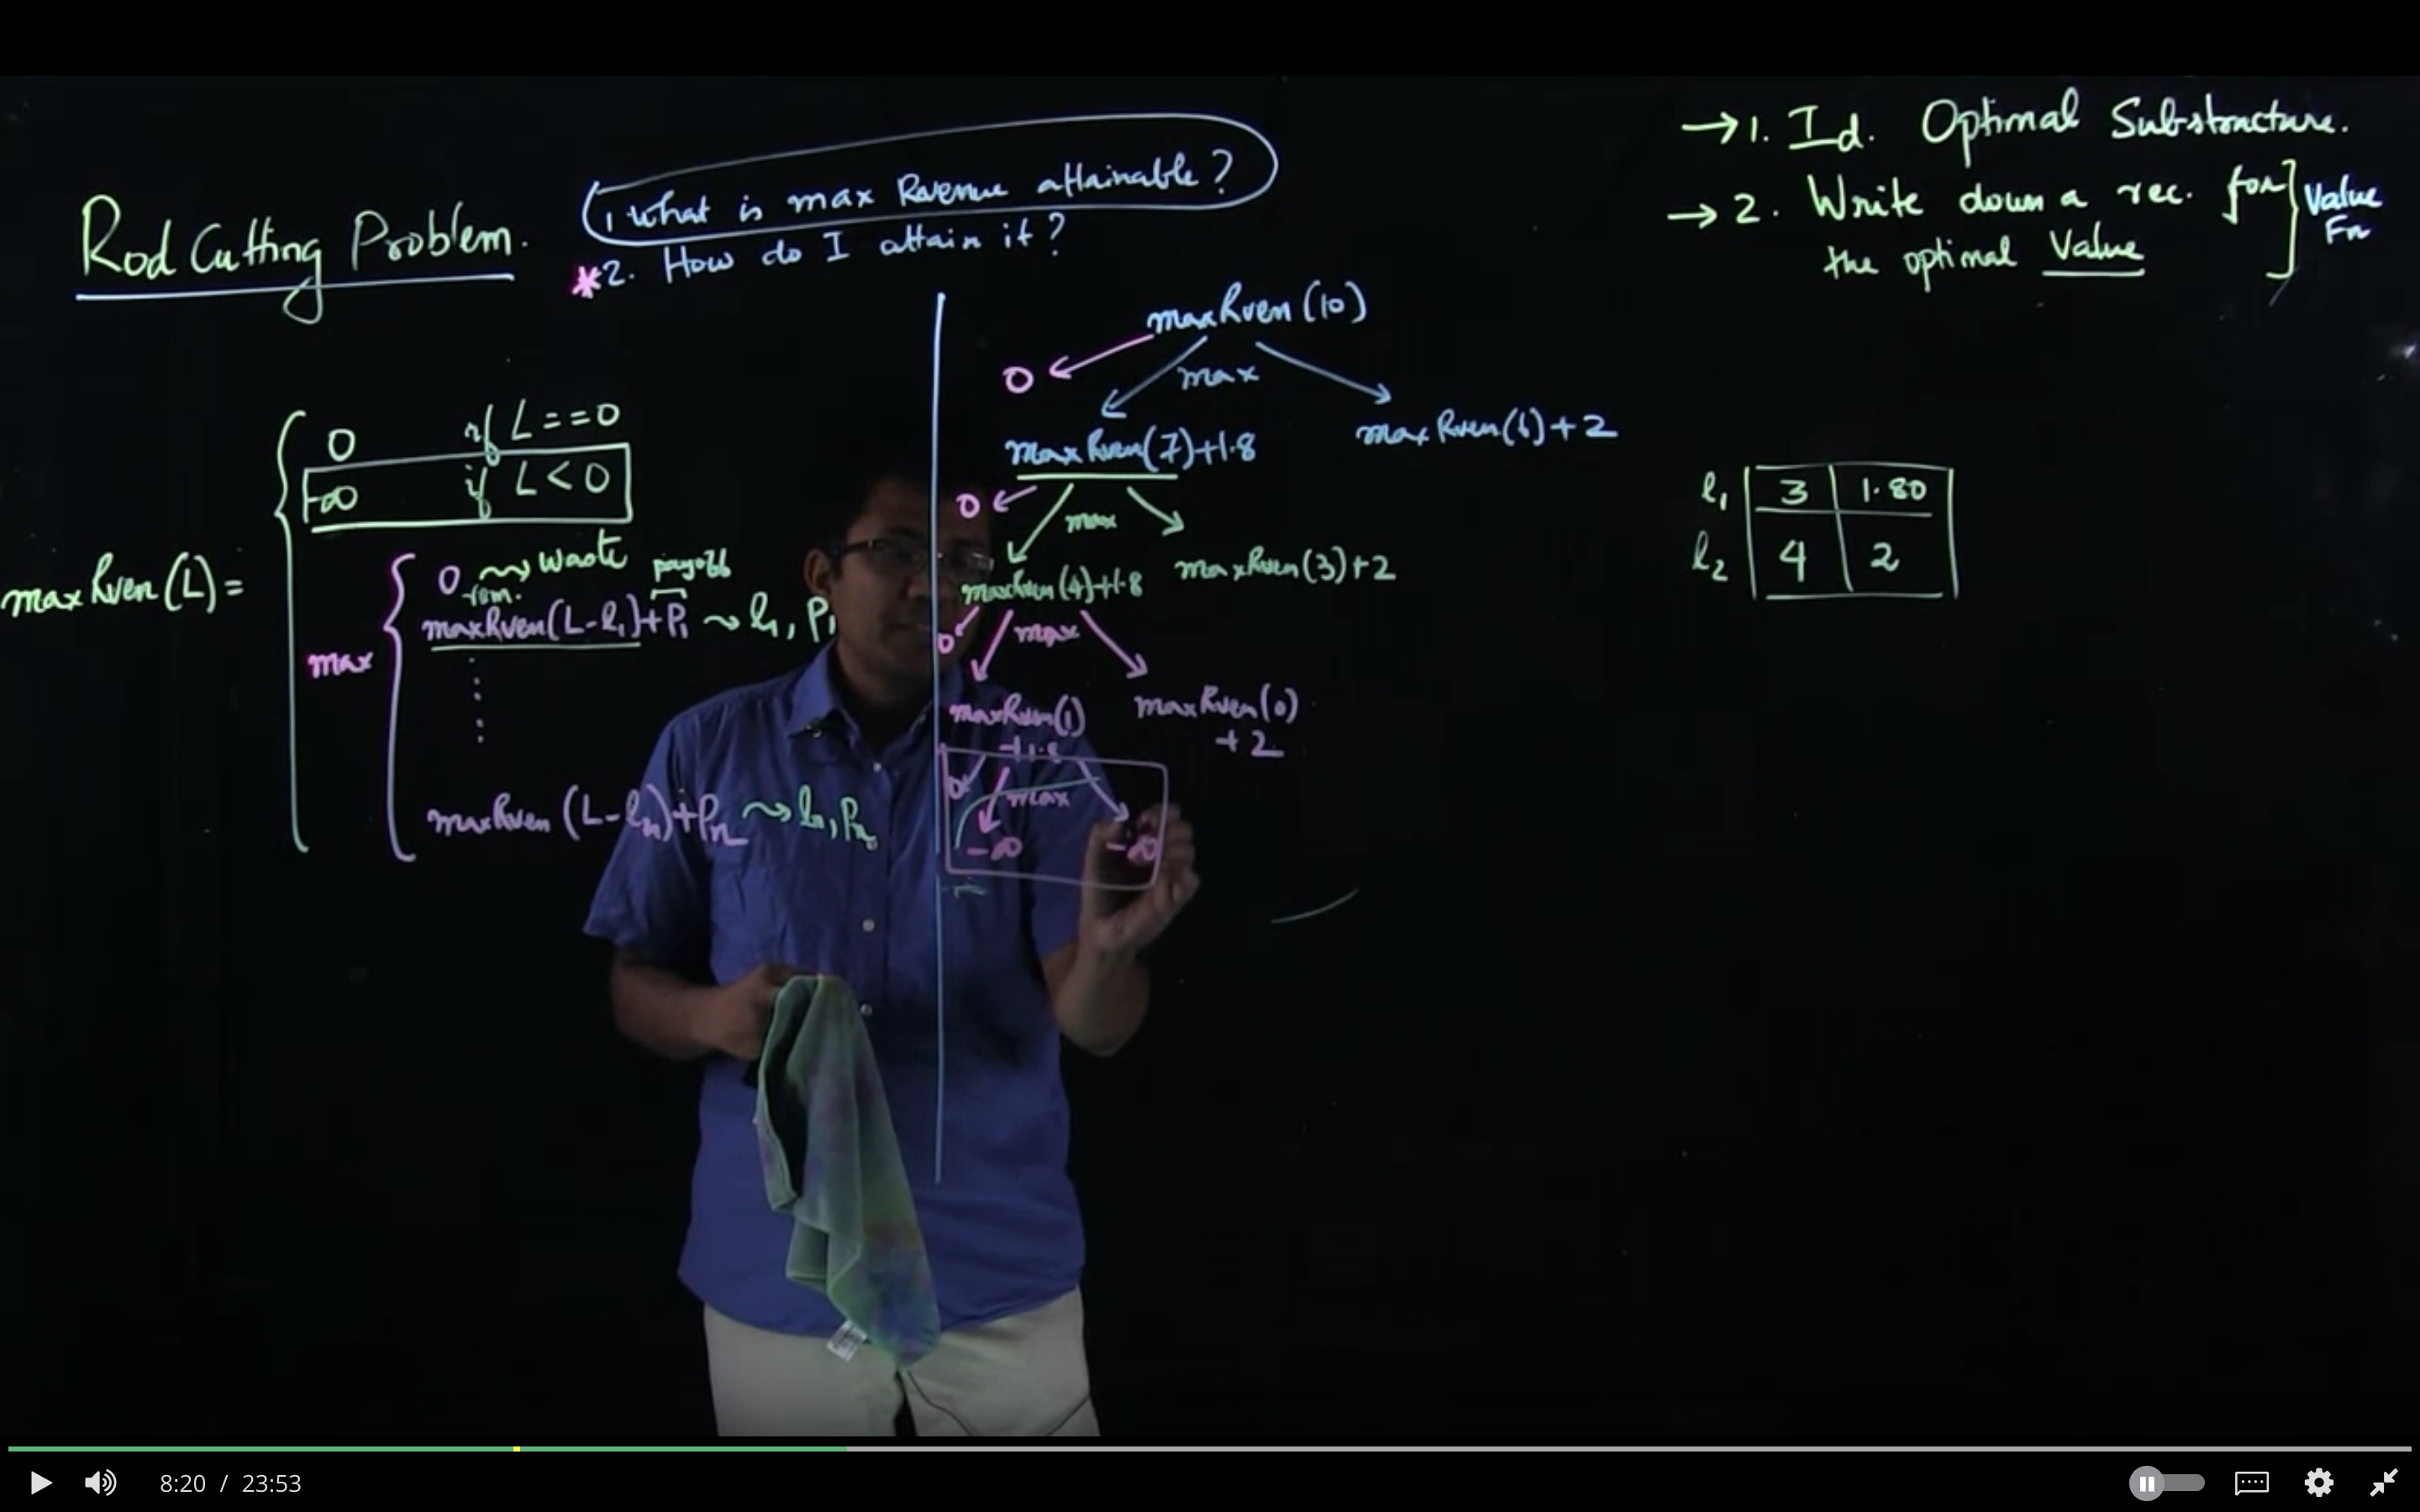 Rod Cutting Problem.
1 What is max Revenue attainable?
*2. How do I attain it?
→ 1. Id. Optimal Substructure.
→ 2. Write down a rec. for
the optimal Value
Value
Fn
maxRven(L) =
0 if L==0
-∞ if L<0
max
0 ⇝ Waste
rem. payoff
maxRven(L-l₁)+P₁ ⇝ l₁, P₁
maxRven(L-lₙ)+Pₙ ⇝ lₙ, Pₙ
maxRven(10)
0 max
maxRven(7)+1.8 maxRven(6)+2
0 max
maxRven(4)+1.8 maxRven(3)+2
0 max
maxRven(1) maxRven(0)
+1.8 +2
0 max
-∞ -∞
l₁ 3 1.80
l₂ 4 2
8:20 / 23:53